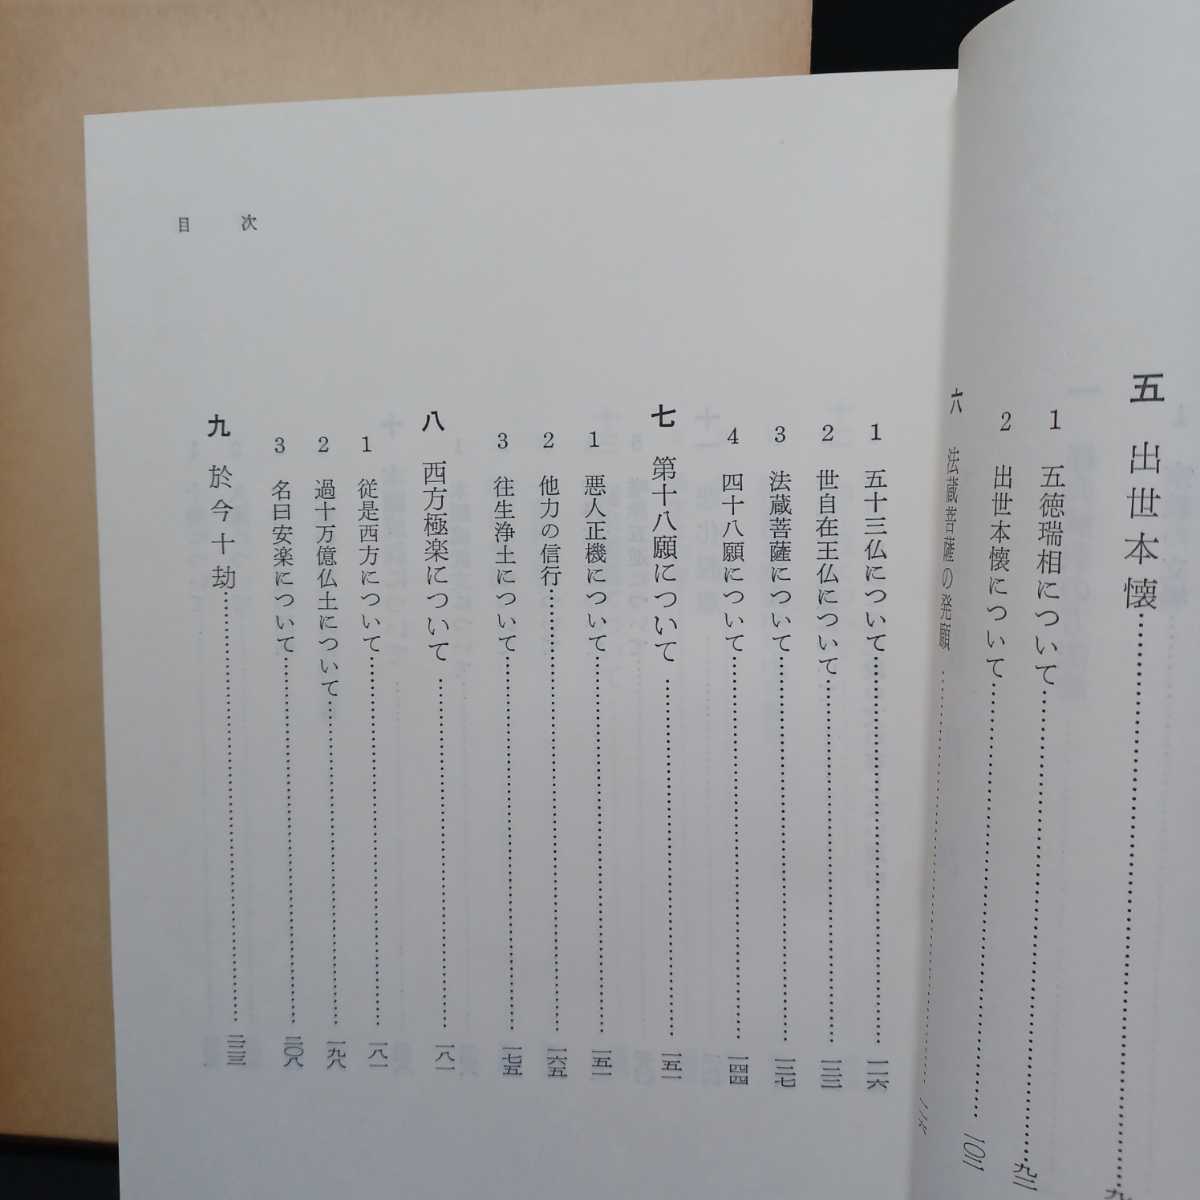 五 出世本懐
1 五徳瑞相について 九二
2 出世本懐について 一〇二
六 法蔵菩薩の発願
1 五十三仏について 一一六
2 世自在王仏について
3 法蔵菩薩について
4 四十八願について 一四四
七 第十八願について 一五一
1 悪人正機について 一五一
2 他力の信行 一六五
3 往生浄土について 一七五
八 西方極楽について 一八一
1 従是西方について 一八一
2 過十万億仏土について 一九八
3 名曰安楽について 二〇八
九 於今十劫
目次